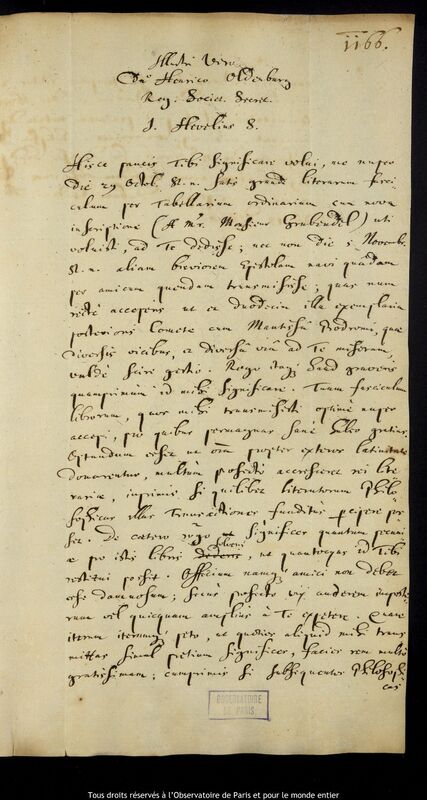 1166.
Illustri Viro
Dno Henrico Oldenburg
Reg. Societ. Secret.
J. Hevelius S.
Hisce paucis Tibi significare volui, me nuper
die 29 Octob. st. n. satis grande literarum fasci-
culum per Tabellarium ordinarium cum nova
inscriptione (A Mr. Monsieur Grubendol) uti
voluisti, ad Te dedisse; nec non die 5 Novemb.
st. n. aliam breviorem Epistolam navi quadam
per amicum quendam transmisisse; quas num
recte acceperis ut et duodecim illa exemplaria
posterioris Cometae cum Mantissa Prodromi, quae
diversis vicibus, et diversa via ad Te miseram,
valde scire gestio. Rogo itaq; haud graveris
quamprimum id mihi significare. Tuum fasciculum
librorum, quos mihi transmisisti optime nuper
accepi, pro quibus permagnas sane habeo gratias.
Optandum esset ut omnia propter exteros latinitate
donarentur, multum profecto accresceret rei lite-
rariae, inprimis si quilibet literatorum Philo-
sophicas illas Transactiones funditus percipere pos-
set. De caetero rogo significes quantum pecuni-
ae pro istis libris, ut quantocyus id Tibi
restitui possit. Officium namq; amici non debet
esse damnosum; secus profecto vix auderem imposte-
rum vel quicquam amplius à Te expetere. Quare
iterum iterumq; peto, ut quoties aliquid mihi trans
mittas simul pretium significes, facies rem multo
gratissimam; cumprimis si subsequentes Philosophi
cas
OBSERVATOIRE
DE PARIS
Tous droits réservés à l'Observatoire de Paris et pour le monde entier